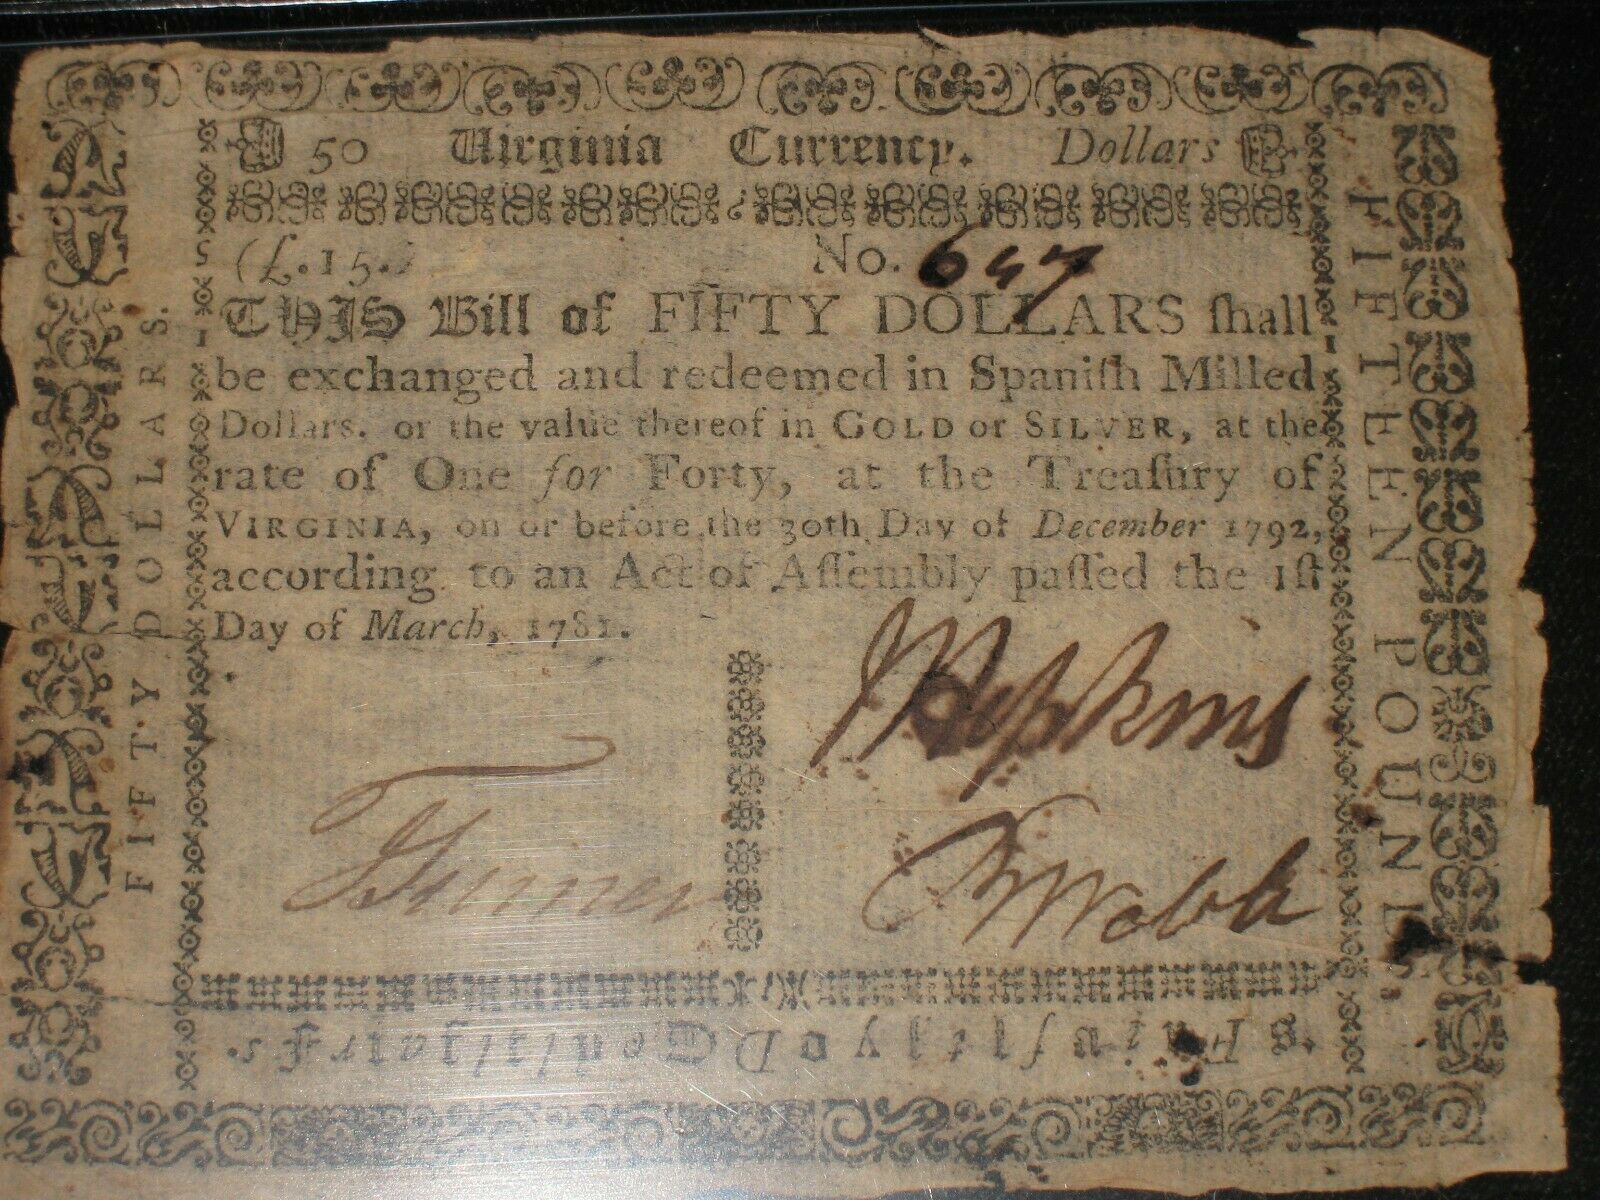 50 Virginia Currency. Dollars
(£.15.) No. 647
THIS Bill of FIFTY DOLLARS ſhall
be exchanged and redeemed in Spaniſh Milled
Dollars. or the value thereof in GOLD or SILVER, at the
rate of One for Forty, at the Treaſury of
VIRGINIA, on or before the 30th Day of December 1792,
according to an Act of Aſſembly paſſed the 1ſt
Day of March, 1781.
JHopkins
Turner
Webb
FIFTY DOLLARS.
FIFTEEN POUNDS